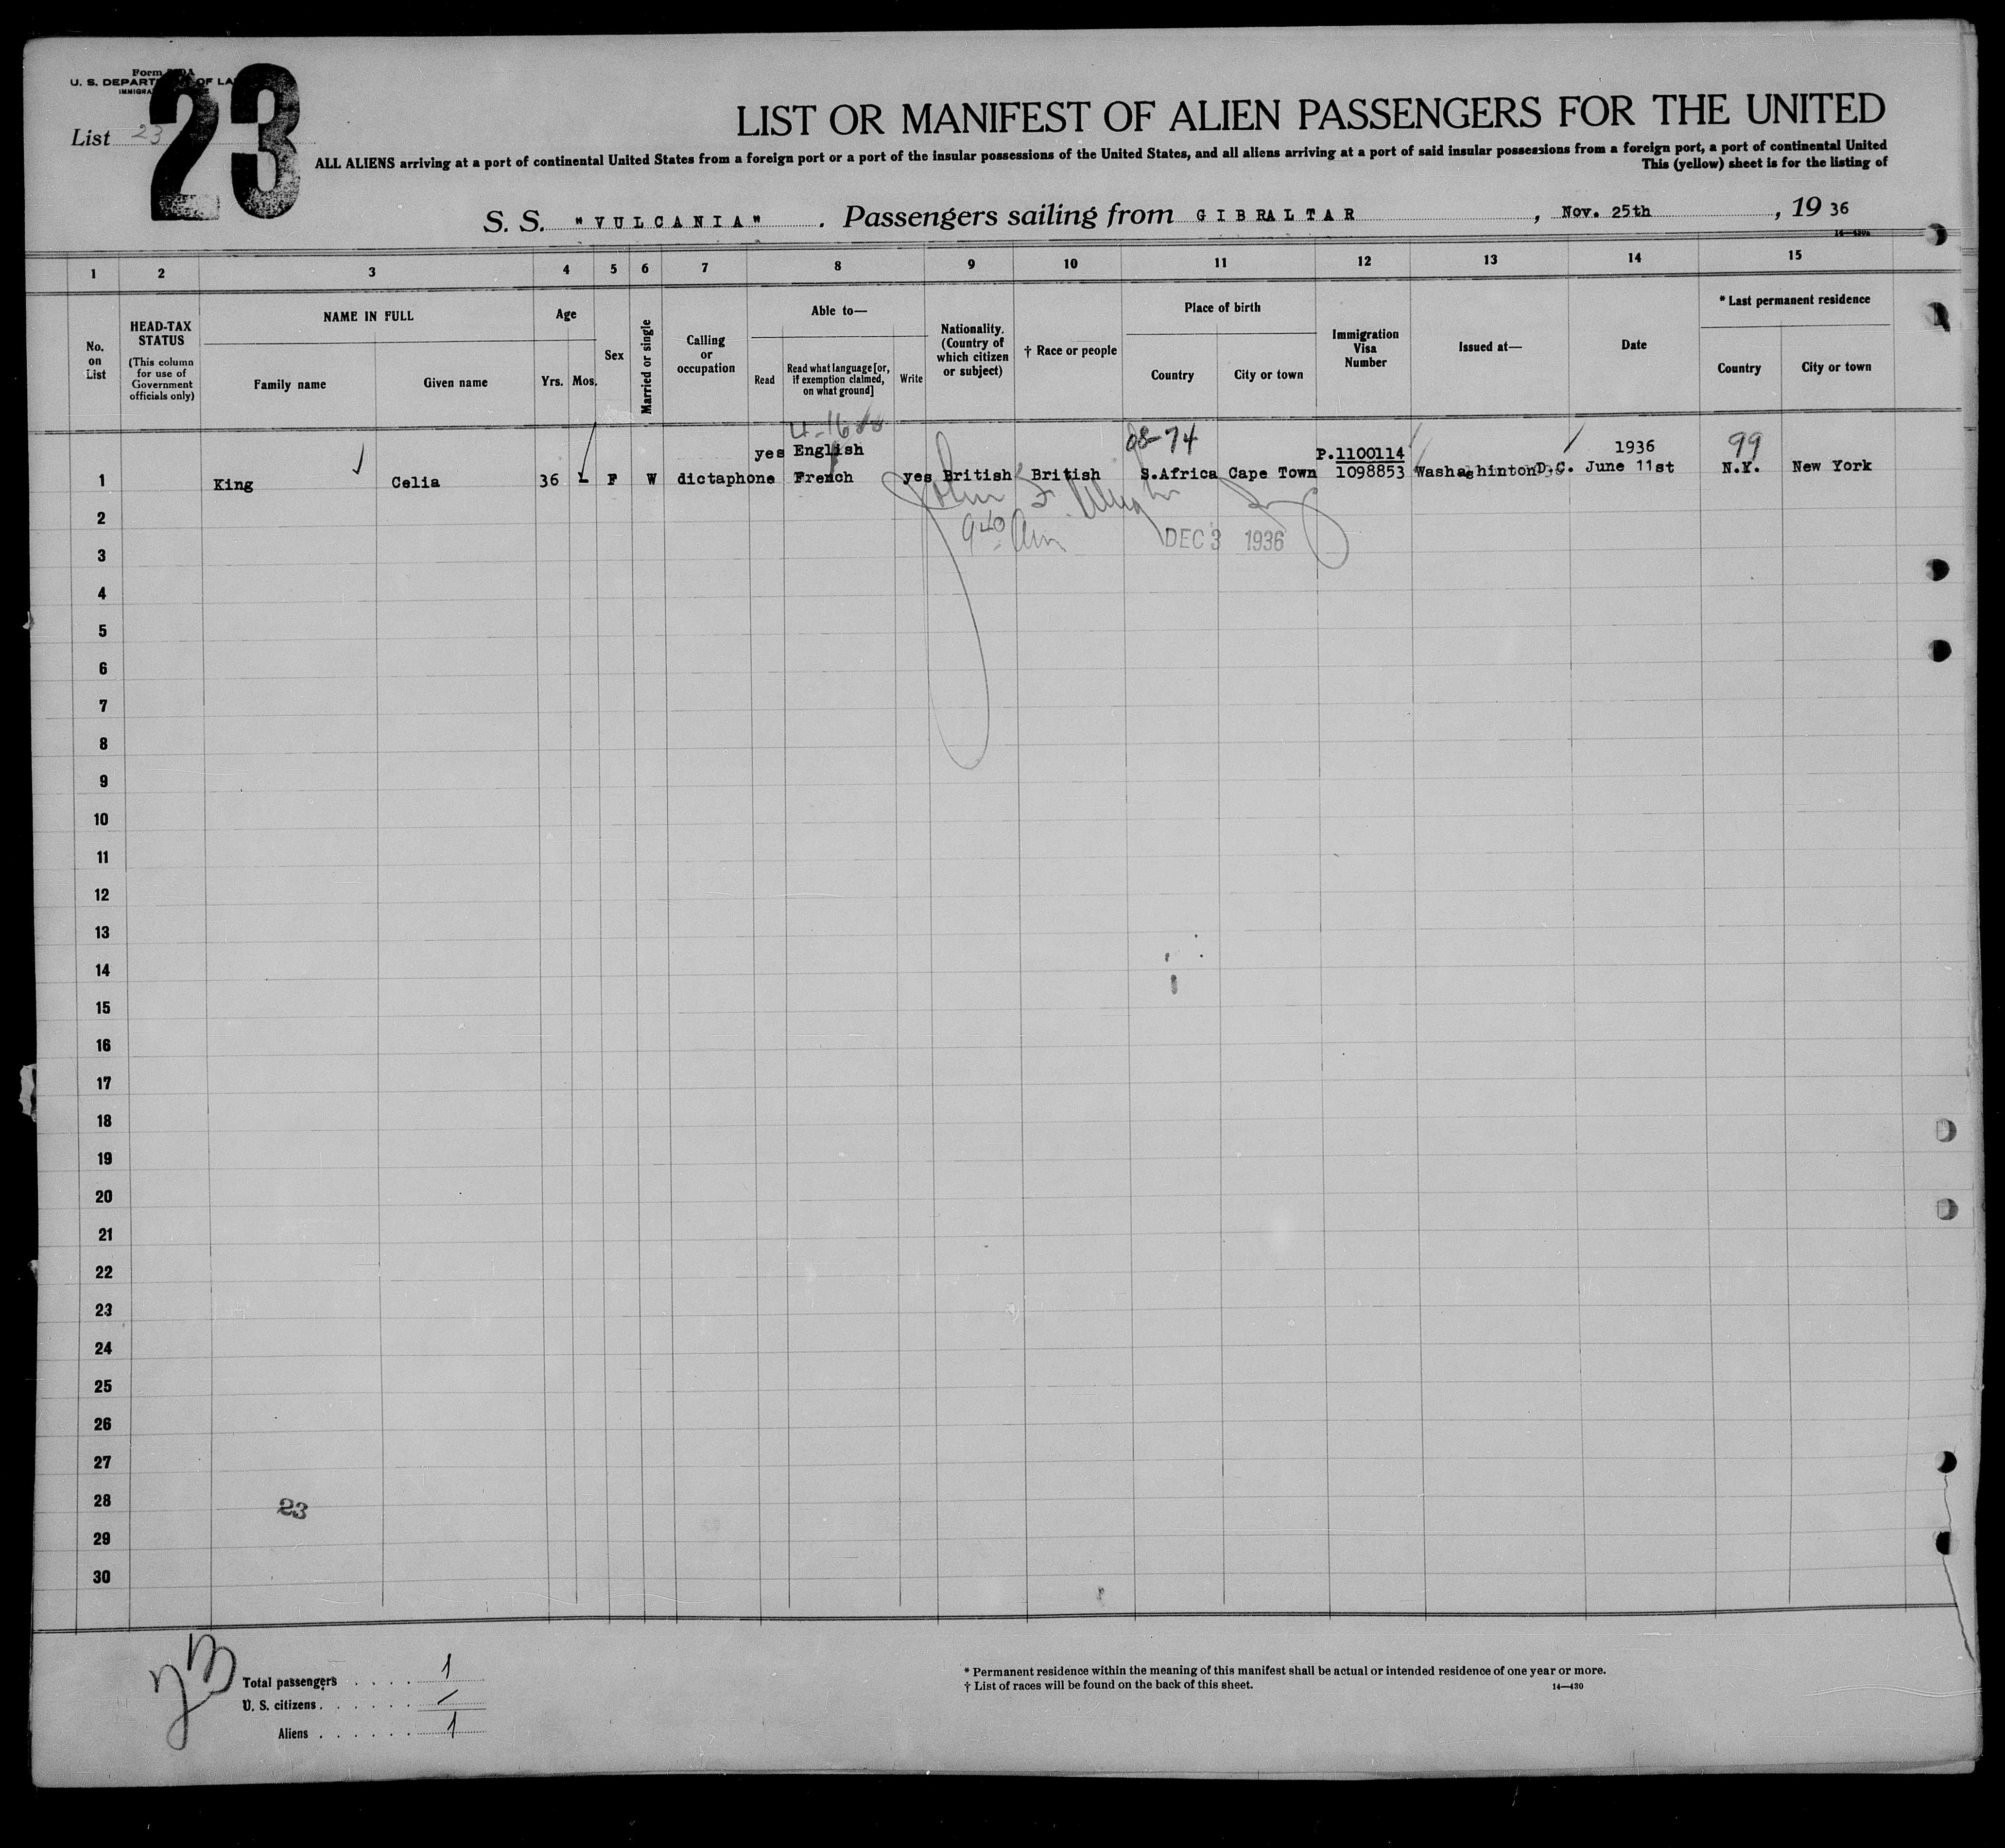 Form
U. S. DEPART OF LA
IMMIGRA
List 23
23
LIST OR MANIFEST OF ALIEN PASSENGERS FOR THE UNITED
ALL ALIENS arriving at a port of continental United States from a foreign port or a port of the insular possessions of the United States, and all aliens arriving at a port of said insular possessions from a foreign port, a port of continental United
This (yellow) sheet is for the listing of
S. S. "VULCANIA". Passengers sailing from GIBRALTAR, Nov. 25th, 19 36
1 2 3 4 5 6 7 8 9 10 11 12 13 14 15
No. on List
HEAD-TAX STATUS
(This column for use of Government officials only)
NAME IN FULL
Family name Given name
Age
Yrs. Mos.
Sex
Married or single
Calling or occupation
Able to—
Read
Read what language [or, if exemption claimed, on what ground]
Write
Nationality. (Country of which citizen or subject)
† Race or people
Place of birth
Country City or town
Immigration Visa Number
Issued at—
Date
* Last permanent residence
Country City or town
08-74 99
yes English P.1100114 1936
1 King Celia 36 F W dictaphone French yes British British S.Africa Cape Town 1098853 Washashinton D.C. June 11st N.Y. New York
2
940 Am DEC 3 1936
3
4
5
6
7
8
9
10
11
12
13
14
15
16
17
18
19
20
21
22
23
24
25
26
27
28 23
29
30
Total passengers . . . . 1
U. S. citizens . . . . . . /
Aliens . . . . . . 1
* Permanent residence within the meaning of this manifest shall be actual or intended residence of one year or more.
† List of races will be found on the back of this sheet. 14—430